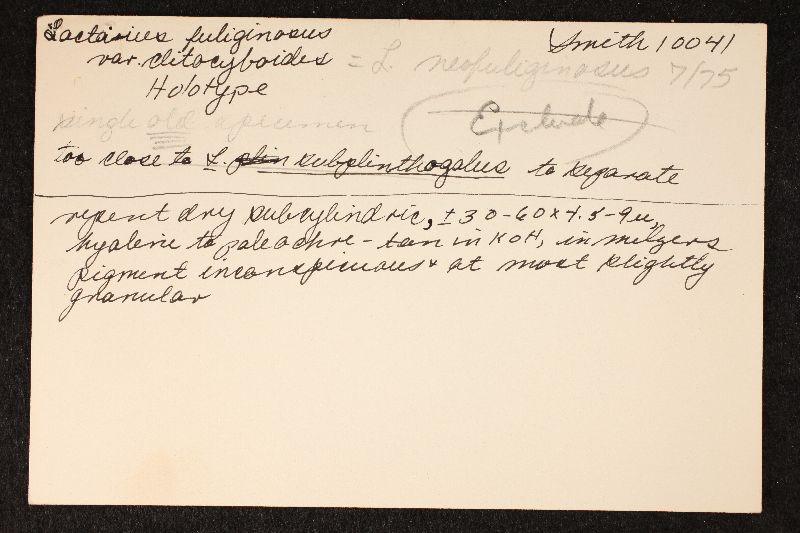 Lactarius fuliginosus
Smith 10041
var. clitocyboides
= L. neofuliginosus 7/75
Holotype
Exclude
single old specimen
too close to L. plin subplinthogalus to separate
repent dry subcylindric, ± 30-60 x 4.5-9u,
hyaline to pale ochre-tan in KOH, in melzers
pigment inconspicuous & at most slightly
granular